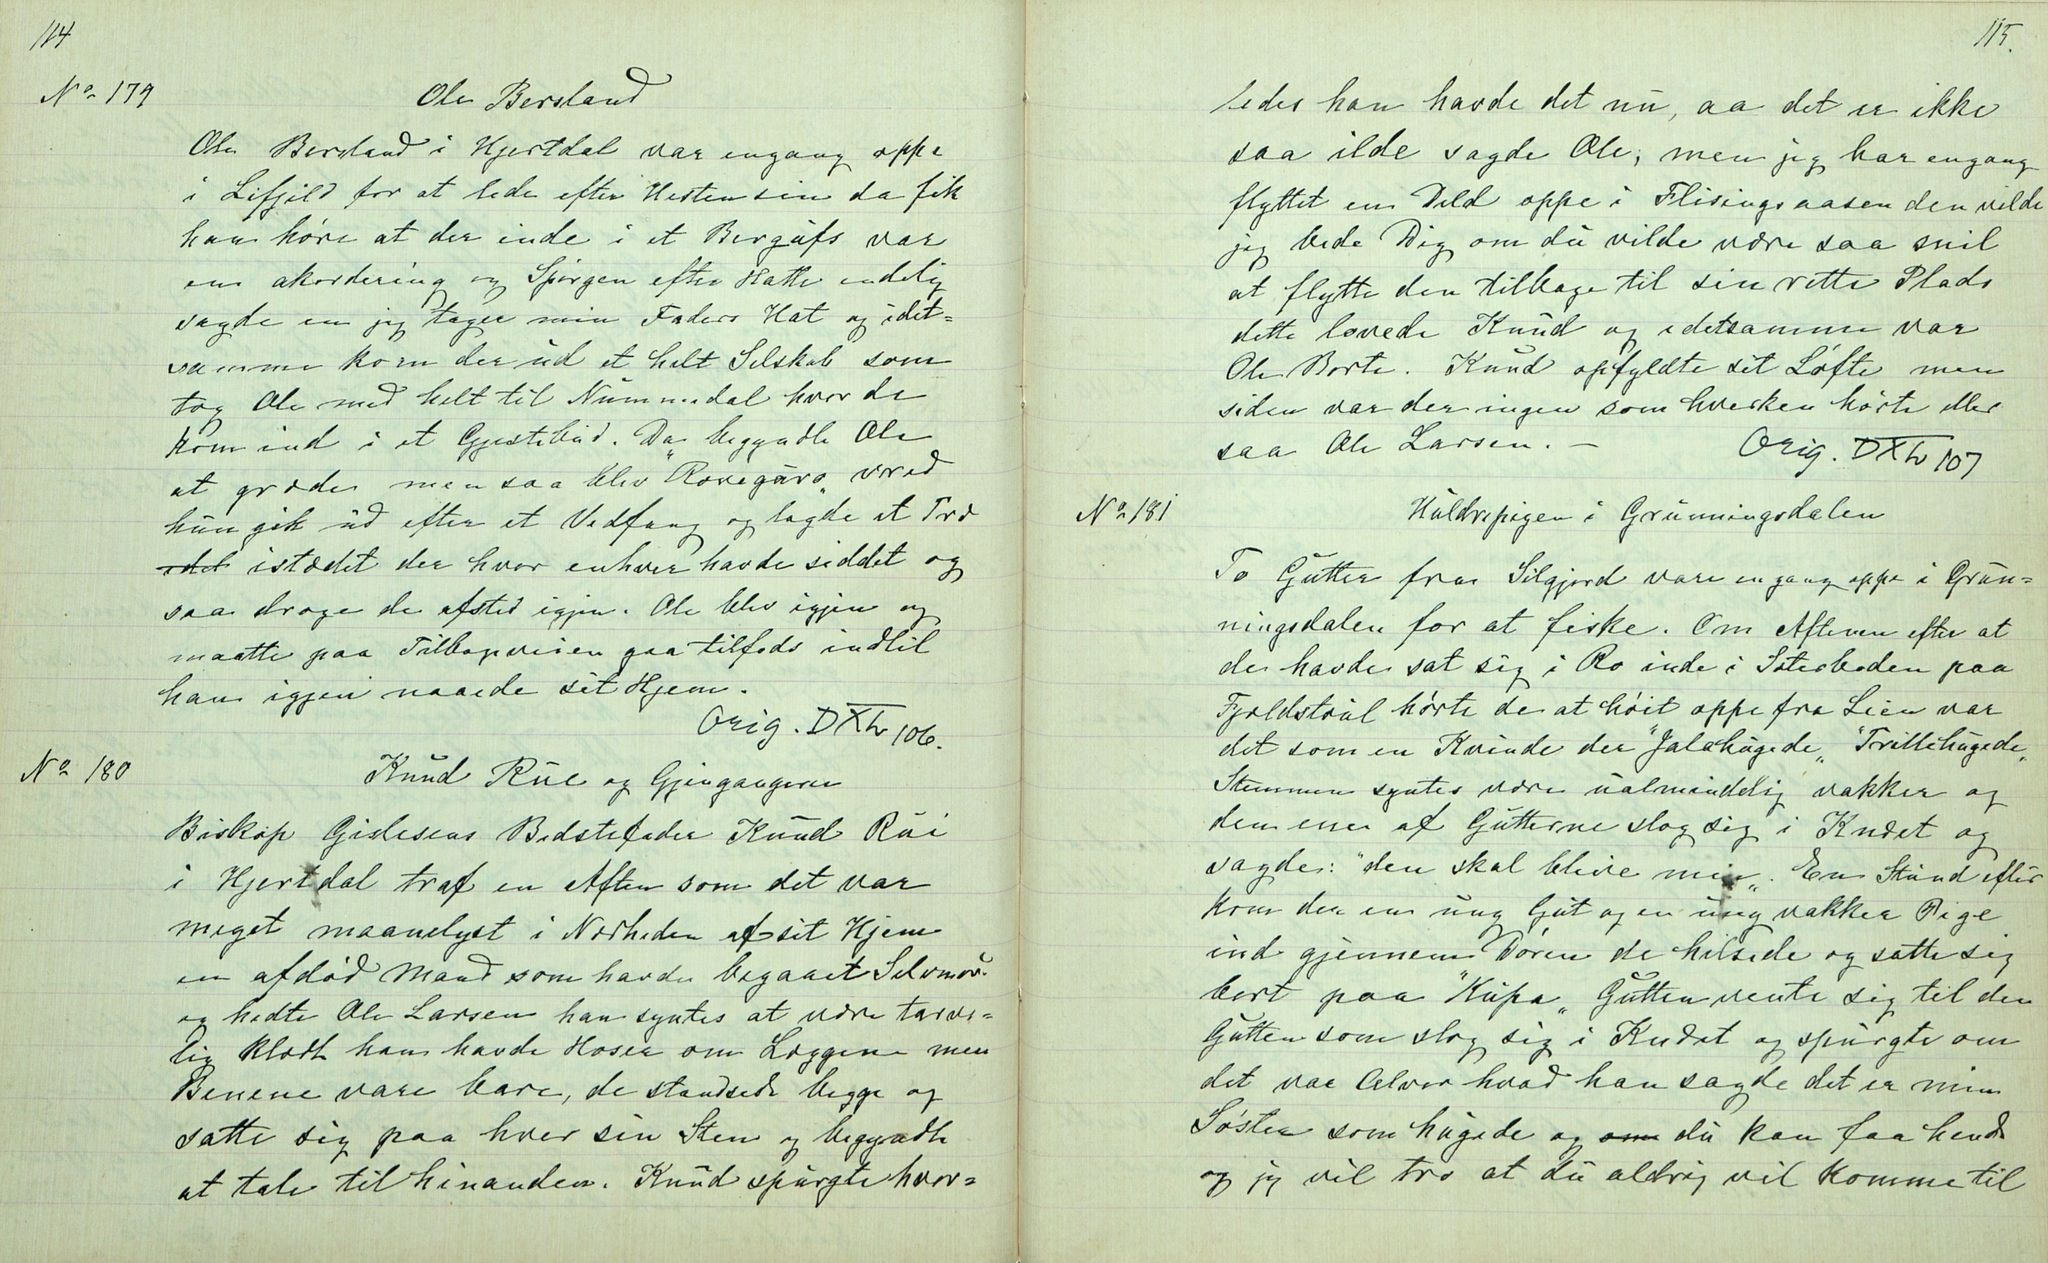 114
No 179
Ole Bersland
Ole Bersland i Hjertdal var engang oppe
i Lifjeld for at lede efter Hesten sin da fik
han høre at der inde i et Bergufs var
en akordering og Spørgen efter Hatte endelig
sagde en jeg tager min Faders Hat og idet-
samme kom der ud et helt Selskab som
tog Ole med helt til Nummedal hvor de
kom ind i et Gjestebud. Da begyndte Ole
at græde men saa blev "Rovegurs" vred
hun gik ud efter et Vedfang og lagde et Træ
idet istedet der hvor enhver havde siddet og
saa droge de afsted igjen. Ole blev igjen og
maatte paa Tilbageveien gaa tilfods indtil
han igjen naaede sit Hjem.
Orig. DXL 106.
No 180
Knud Rue og Gjengangeren
Biskop Gislesens Bedstefader Knud Rui
i Hjertdal traf en Aften som det var
meget maanelyst i Nærheden af sit Hjem
en afdød Mand som havde begaaet Selvmor
og hedte Ole Larsen han syntes at være tarve-
lig klædt han havde Hoser om Læggene men
Benene vare bare, de standsede begge og
satte sig paa hver sin Sten og begyndte
at tale til hinanden. Knud spurgte hvor-
115.
ledes han havde det nu, aa det er ikke
saa ilde sagde Ole, men jeg har engang
flyttet en Deld oppe i Flisingsaasen den vilde
jeg bede Dig om du vilde være saa snil
at flytte den tilbage til sin rette Plads
dette lovede Knud og idetsamme var
Ole Borte. Knud opfyldte sit Løfte men
siden var der ingen som hverken hørte eller
saa Ole Larsen. –
Orig. DXL 107
No 181
Huldrepigen i Grunningsdalen
To Gutter fra Silgjord vare en gang oppe i Grun-
ningsdalen for at fiske. Om Aftenen efter at
de havde sat sig i Ro inde i Sæterboden paa
Fjeldstøul hørte de at høit oppe fra Lien var
det som en Kvinde der "Jalahugede" "Trillehugede"
Stemmen syntes være ualmindelig vakker og
den ene af Gutterne slog sig i Knæet og
sagde: "den skal blive min". En Stund efter
kom der en ung Gut og en ung vakker Pige
ind gjennem Døren de hilsede og satte sig
bort paa "Kupa" Gutten vente sig til den
Gutten som slog sig i Knæet og spurgte om
det var Alvor hvad han sagde det er min
Søster som hugede og om du kan faa hende
og jeg vil tro at du aldrig vil komme til